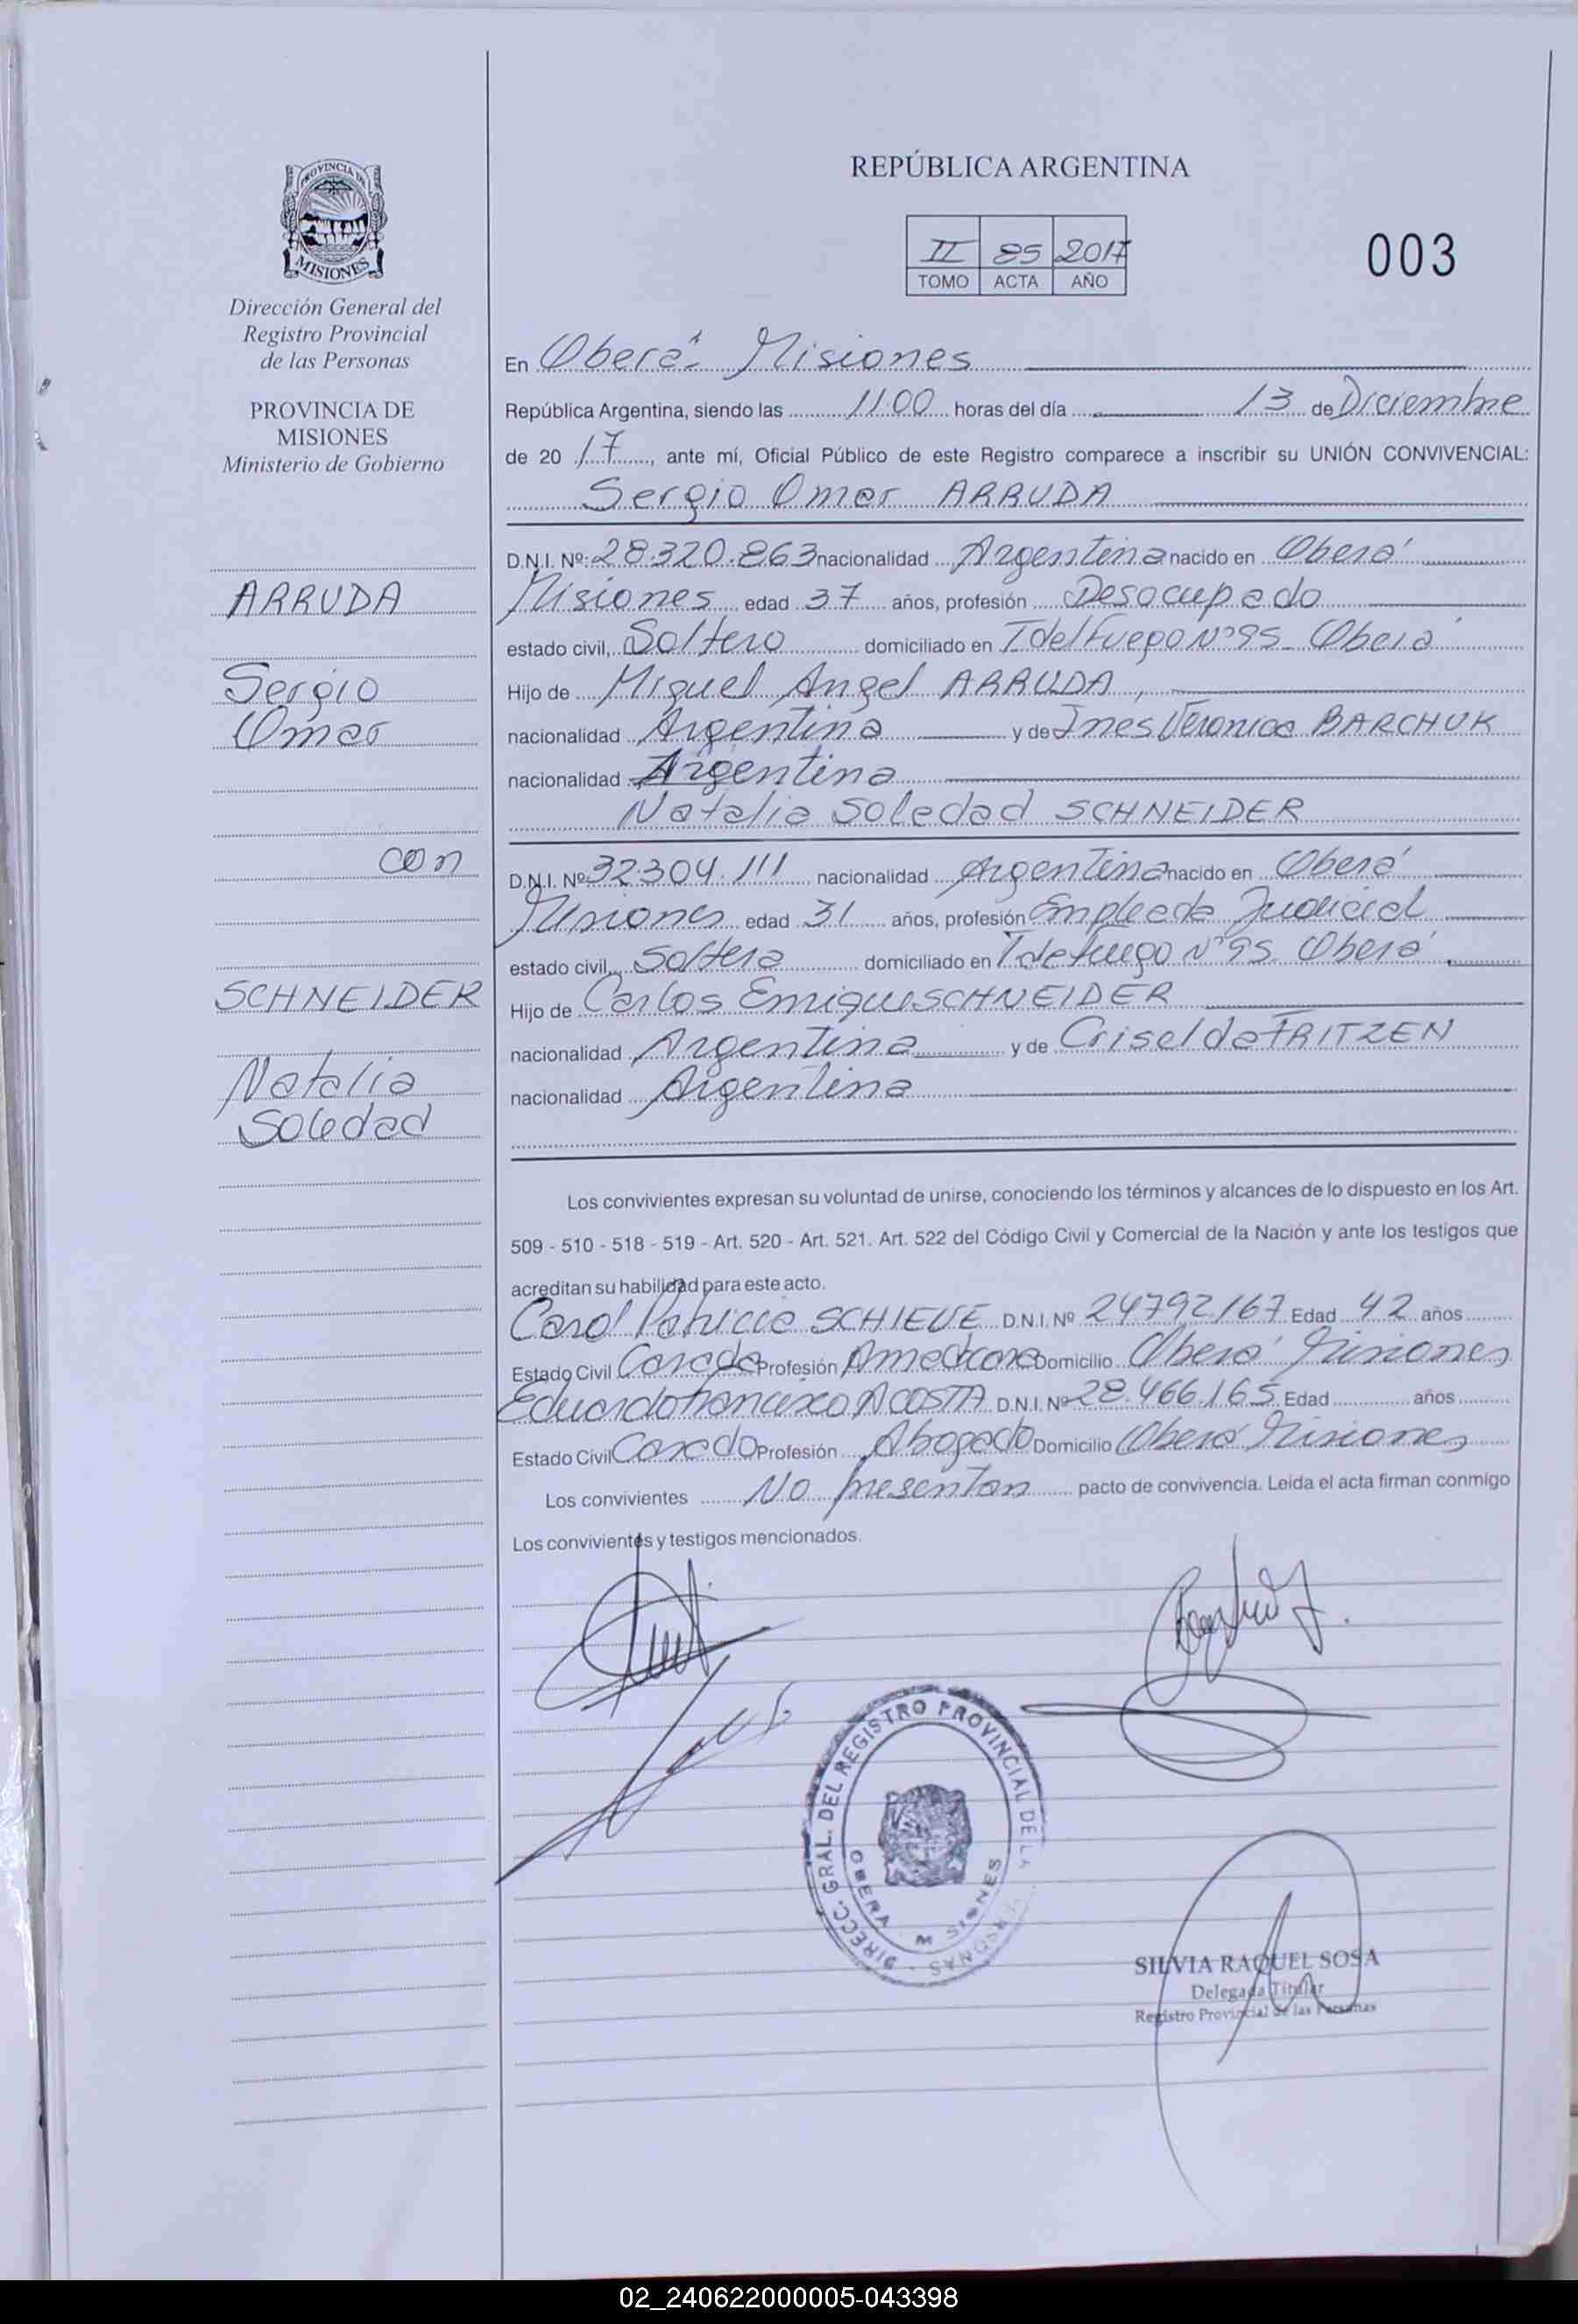 PROVINCIA DE
MISIONES
Dirección General del
Registro Provincial
de las Personas
PROVINCIA DE
MISIONES
Ministerio de Gobierno
ARRUDA
Sergio
Omar
con
SCHNEIDER
Natalia
Soledad
REPÚBLICA ARGENTINA
II 85 2017
TOMO ACTA AÑO
003
En Oberá Misiones
República Argentina, siendo las 1100 horas del día 13 de Diciembre
de 20 17, ante mí, Oficial Público de este Registro comparece a inscribir su UNIÓN CONVIVENCIAL:
Sergio Omar ARRUDA
D.N.I. Nº: 28.320.863 nacionalidad Argentina nacido en Oberá
Misiones edad 37 años, profesión Desocupado
estado civil, Soltero domiciliado en T del Fuego Nº 95 - Oberá
Hijo de Miguel Angel ARRUDA,
nacionalidad Argentina y de Ines Veronica BARCHUK
nacionalidad Argentina
Natalia Soledad SCHNEIDER
D.N.I. Nº 32.304.111 nacionalidad Argentina nacido en Oberá
Misiones edad 31 años, profesión Empleada Judicial
estado civil, Soltera domiciliado en T de Fuego Nº 95 Oberá
Hijo de Carlos Enrique SCHNEIDER
nacionalidad Argentina y de Criselda FRITZEN
nacionalidad Argentina
Los convivientes expresan su voluntad de unirse, conociendo los términos y alcances de lo dispuesto en los Art.
509 - 510 - 518 - 519 - Art. 520 - Art. 521. Art. 522 del Código Civil y Comercial de la Nación y ante los testigos que
acreditan su habilidad para este acto.
Carol Patricia SCHIEVE D.N.I. Nº 24792167 Edad 42 años
Estado Civil Casada Profesión Domicilio Oberá Misiones
Eduardo Francisco ACOSTA D.N.I. Nº 28.466.165 Edad años
Estado Civil Casado Profesión Abogado Domicilio Oberá Misiones
Los convivientes No presentan pacto de convivencia. Leida el acta firman conmigo
Los convivientes y testigos mencionados.
DIRECC. GRAL. DEL REGISTRO PROVINCIAL DE LA
OBERA MISIONES
SILVIA RAQUEL SOSA
Delegada Titular
Registro Provincial de las Personas
02_240622000005-043398